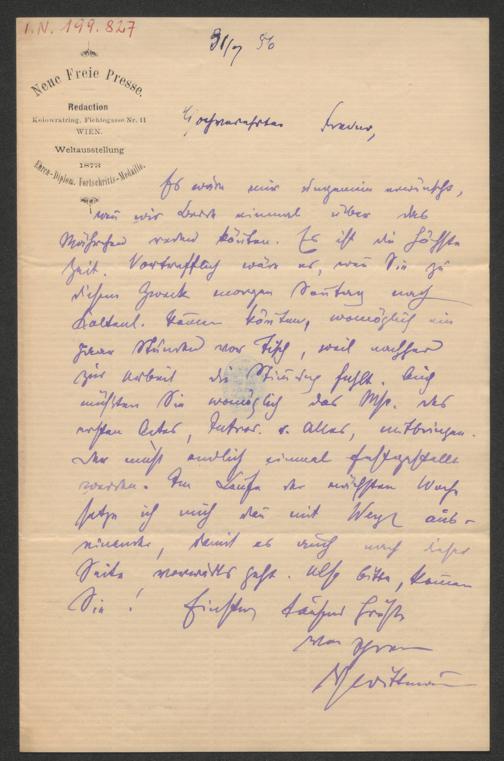 I.N. 199.827
31/7 86
Neue Freie Presse.
Redaction
Kolowratring, Fichtegasse Nr. 11
WIEN.
Weltausstellung
1873
Ehren-Diplom. Fortschritts-Medaille.
Hochverehrter Freund,
Es wäre mir ungemein erwünscht,
wenn wir beide einmal über das
Märchen reden könnten. Es ist die höchste
Zeit. Vortrefflich wäre es, wenn Sie zu
diesem Zweck morgen Sonntag nach
Kaltenl. kommen könnten, womöglich ein
paar Stunden vor Tisch, weil nachher
zur Arbeit die Stimmung fehlt. Auch
müßten Sie womöglich das Msp. des
ersten Actes, Introd. u. Alles, mitbringen.
Der muß endlich einmal festgestellt
werden. Im Laufe der nächsten Woche
setze ich mich dann mit Weyl aus-
einander, damit es auch nach dieser
Seite vorwärts geht. Also bitte, kommen
Sie! tausend Grüße
von Ihrem
Wittmann